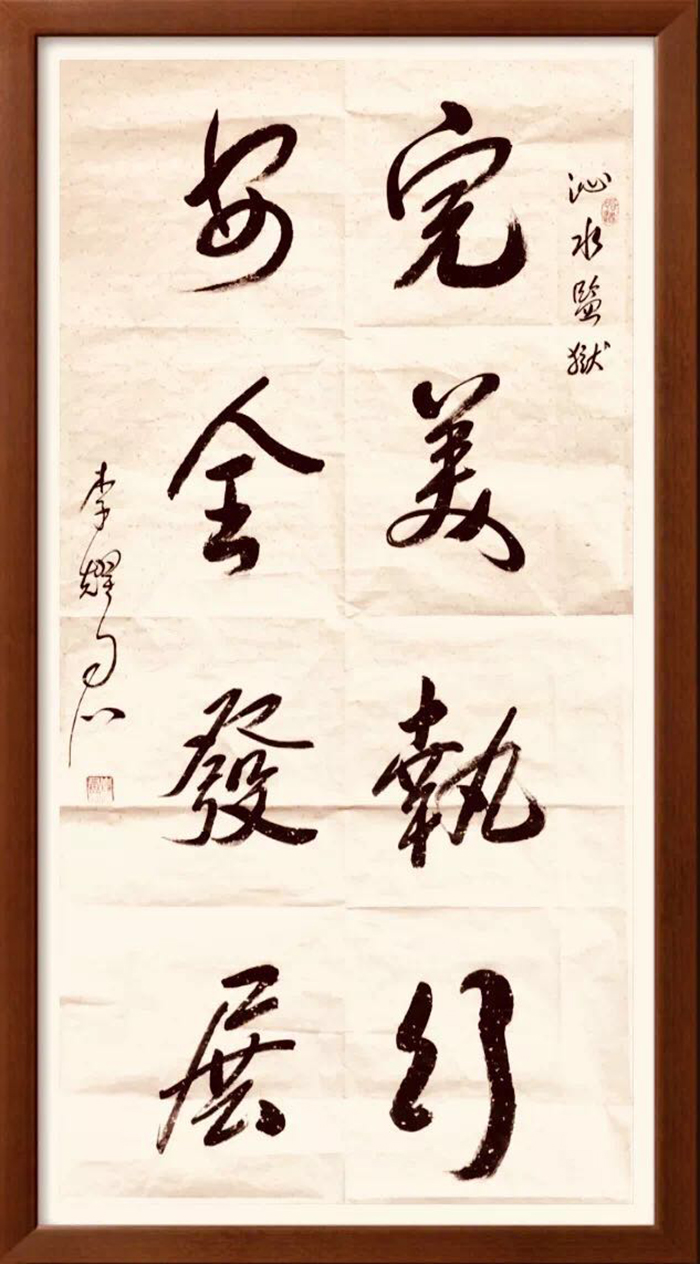 沁水監獄
完美執行
安全發展
李耀